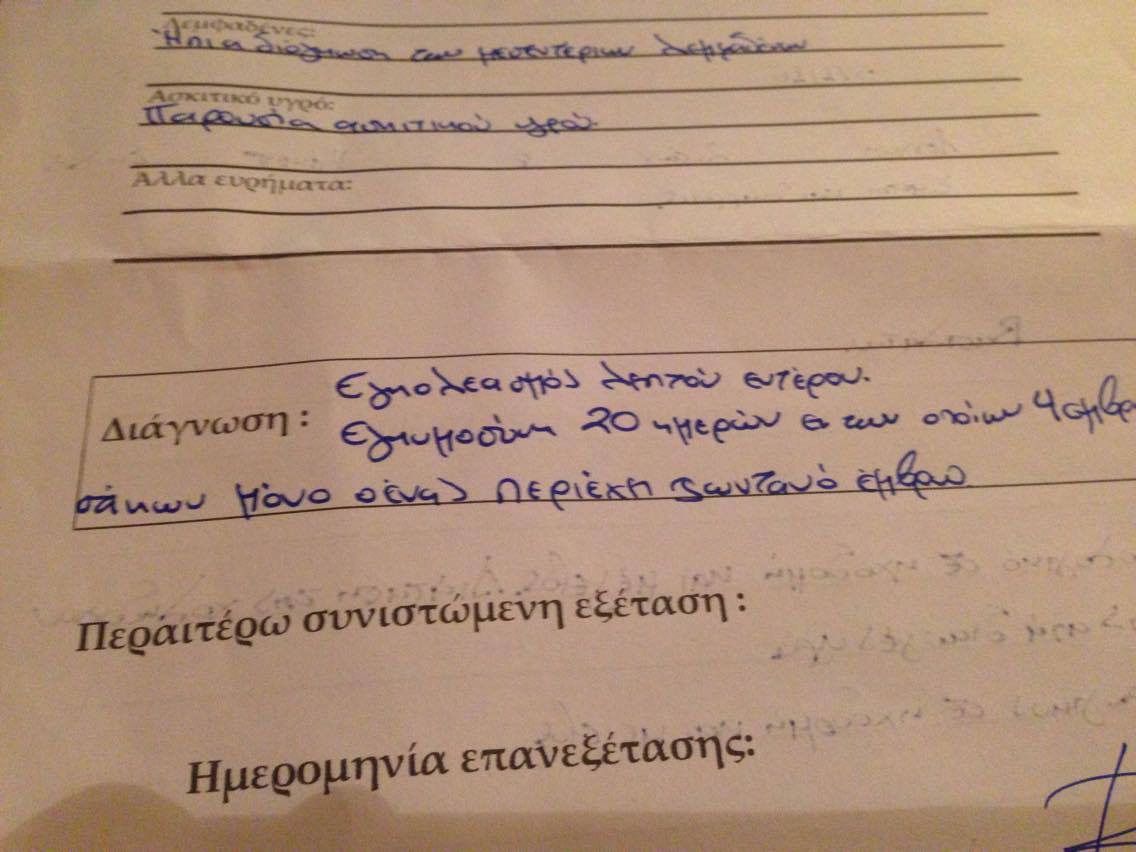 Λεμφαδένες:
Ήπια διόγκωση των μεσεντέριων λεμφαδένων
Ασκιτικό υγρό:
Παρουσία ασκιτικού υγρού.
Άλλα ευρήματα:
Διάγνωση : Εγκολεασμός λεπτού εντέρου.
Εγκυμοσύνη 20 ημερών εκ των οποίων 4 εμβρ
σάκων μόνο ο ένας περιέχη ζωντανό έμβρυο
Περαιτέρω συνιστώμενη εξέταση :
Ημερομηνία επανεξέτασης: